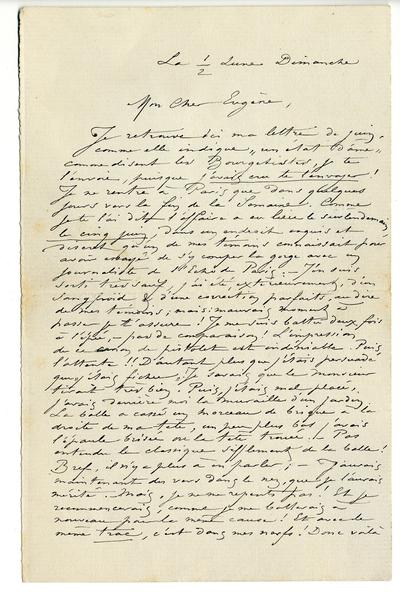 La 1/2 Lune Dimanche
Mon Cher Eugène,
Je retrouve ici ma lettre de juin,
comme elle indique, un état d'âme -
comme disent les Bourgetistes, je te
l'envoie, puisque j'avais cru te l'envoyer!
Je ne rentre à Paris que dans quelques
jours vers la fin de la Semaine. Comme
je te l'ai dit l'affaire a eu lieu le surlendemain
le cinq juin, dans un endroit exquis et
discret qu'un de mes témoins connaissait pour
avoir essayé de s'y couper la gorge avec un
journaliste de l'Echo de Paris. - J'en suis
sorti très sauf, j'ai été, extérieurement, d'un
sang froid & d'une correction parfaits, au dire
de mes témoins, mais mauvais moment à
passer je t'assure. Je me suis battu deux fois
à l'épée, - pas de comparaison! L'impression
de ce canon de pistolet est indéniable. Puis
l'attente!! D'autant plus que j'étais persuadé
que j'étais fichu. Je savais que le Monsieur
tirait très bien. Puis, j'étais mal placé,
j'avais derrière moi la muraille d'un jardin.
La balle a cassé un morceau de brique à la
droite de ma tête, un peu plus bas j'avais
l'épaule brisée ou la tête trouée. - Pas
entendu le classique sifflement de la balle!
Bref, il n'y a plus à en parler; - J'aurais
maintenant des vers dans le nez, que je l'aurais
mérité. Mais, je ne me repens pas! Et je
recommencerais, comme je me battrais à
nouveau pour la même cause! Et avec le
même trac, c'est dans mes nerfs! Donc voilà